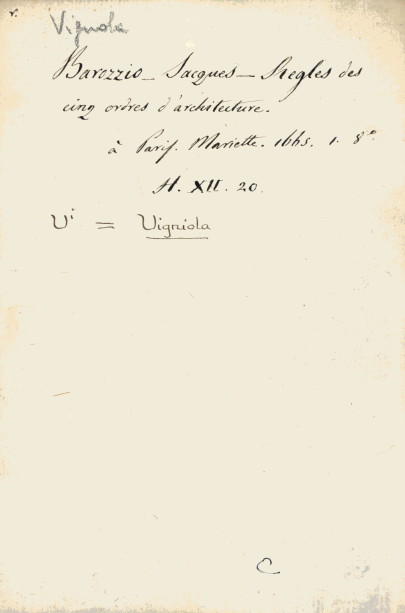 v.
Vignola
Barozzio_ Jacques_ Regles des
cinq ordres d'architecture.
à Paris. Mariette. 1665. 1. 8º.
H. XII. 20.
Vi = Vigniola
C